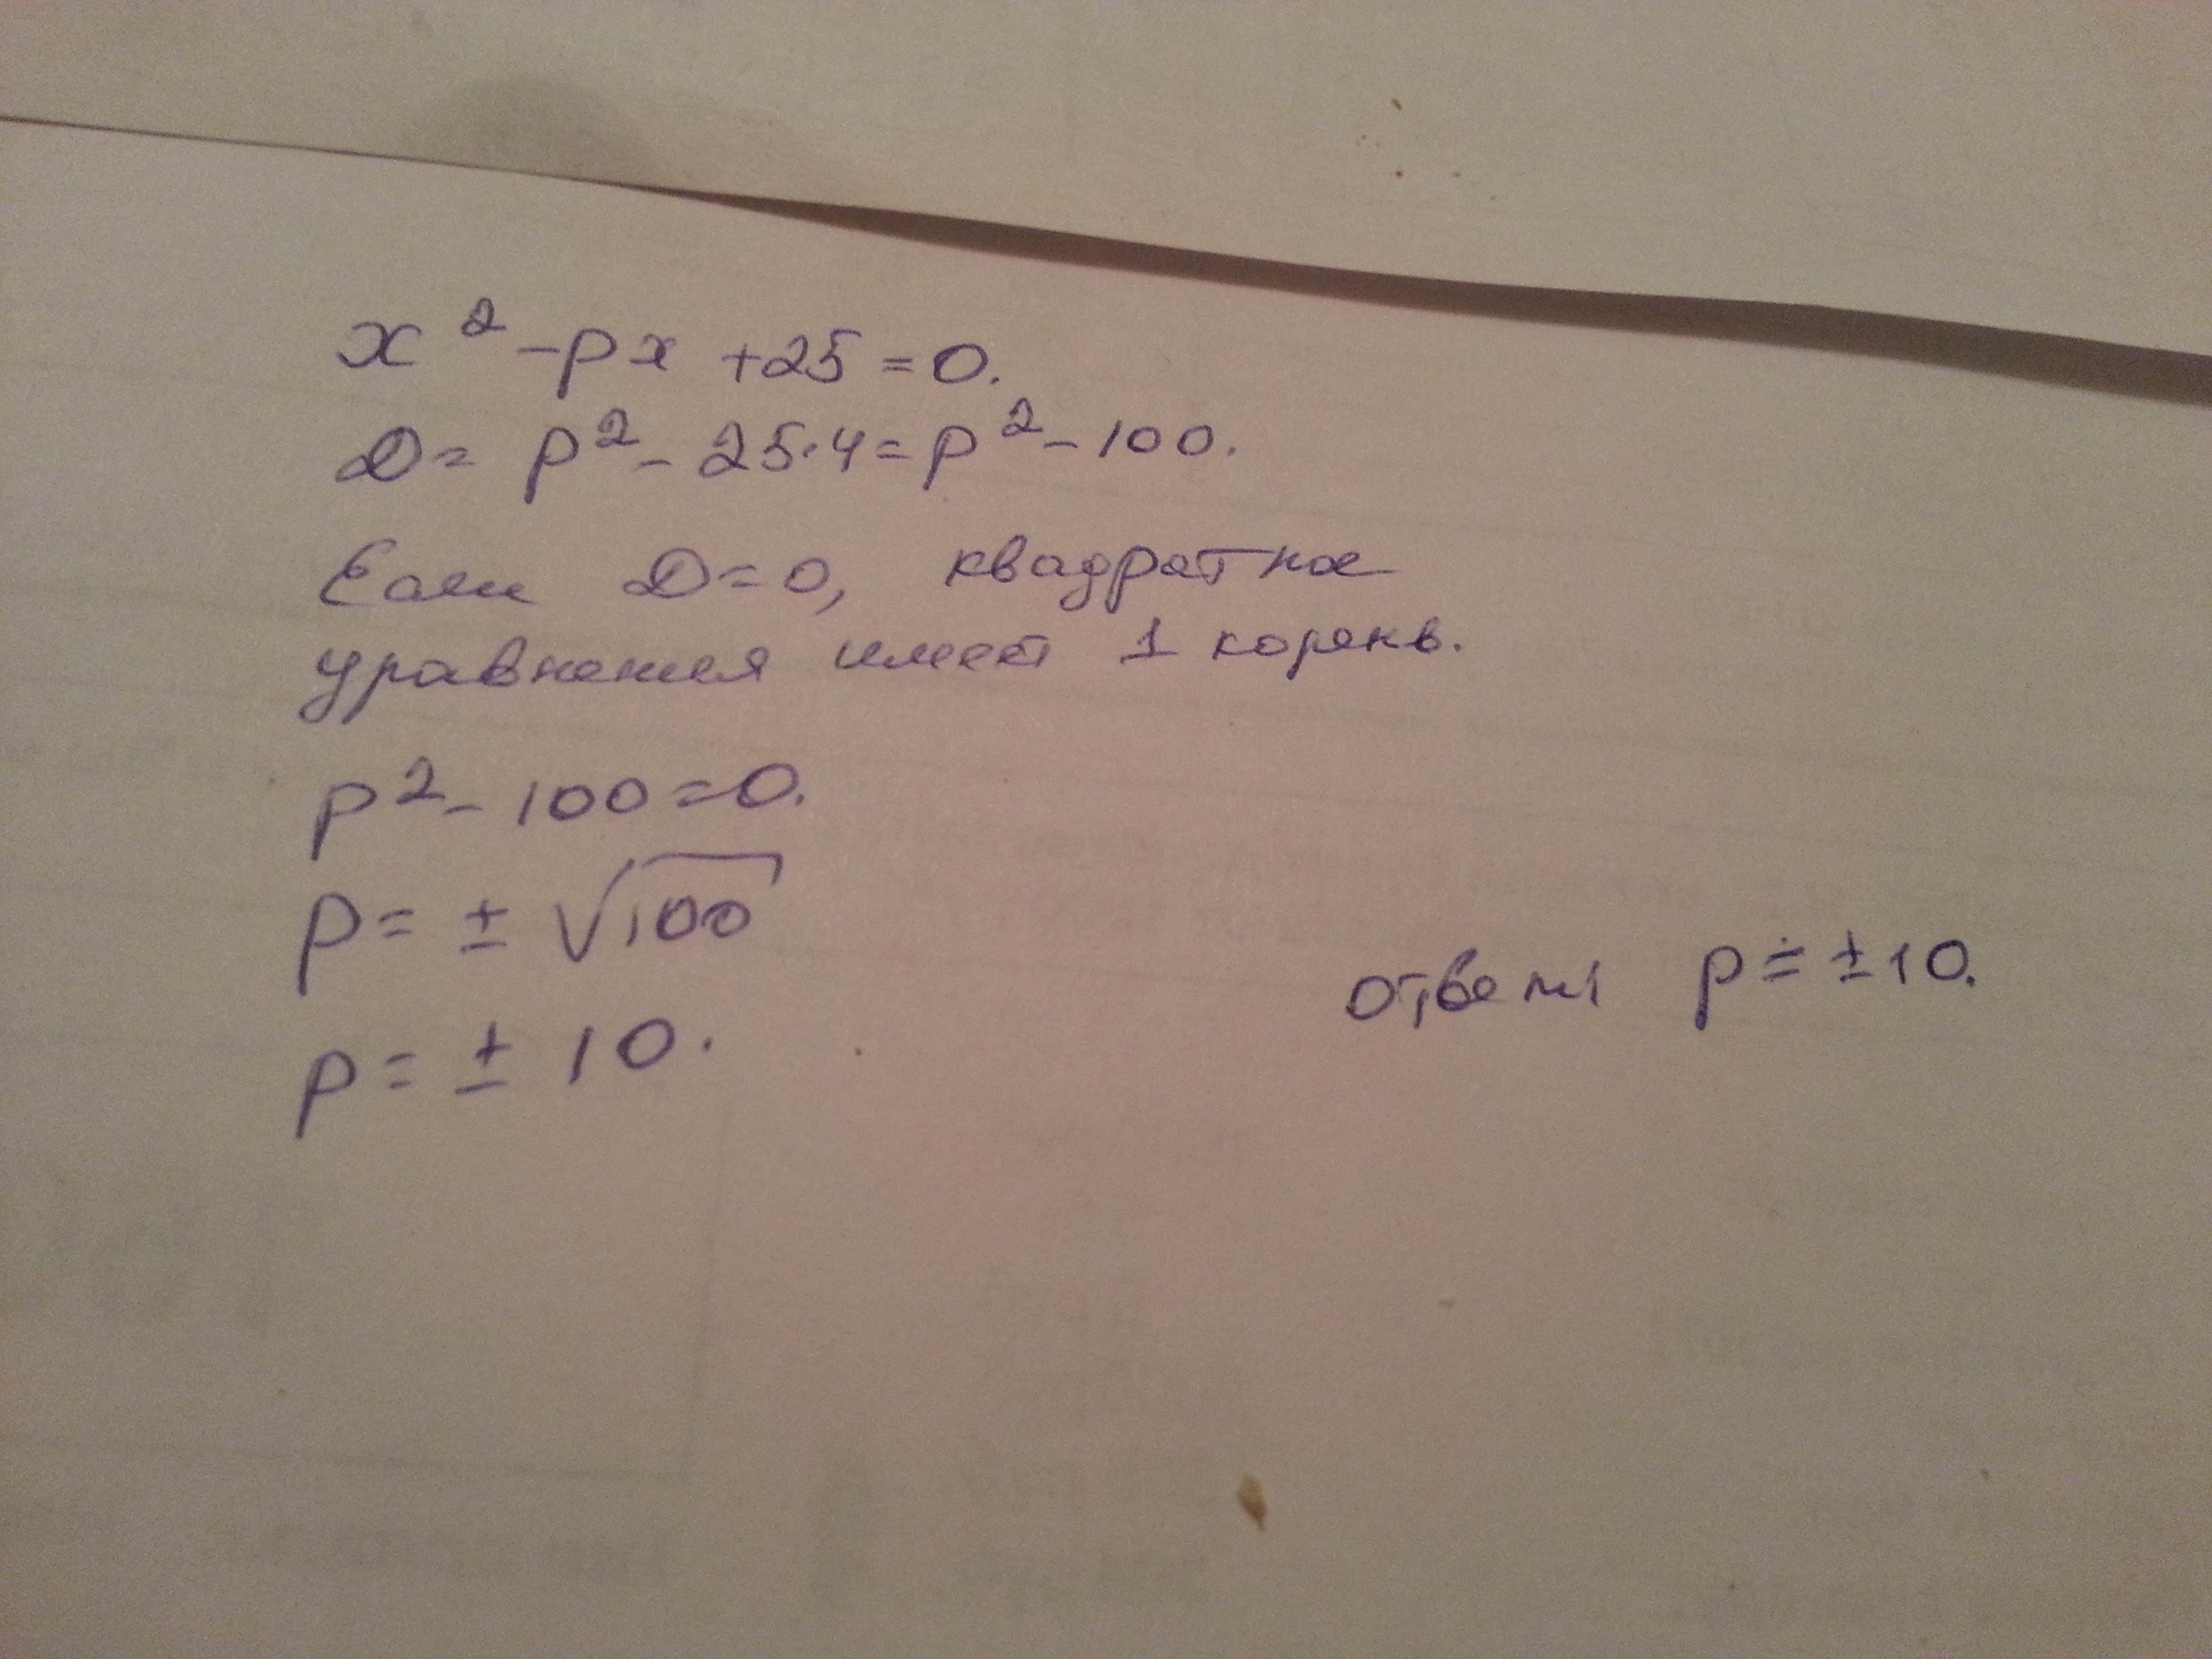 x² - px + 25 = 0.
D = p² - 25·4 = p² - 100.
Если D = 0, квадратное
уравнения имеет 1 корень.
p² - 100 = 0.
p = ± √100
p = ± 10.
ответ p = ±10.